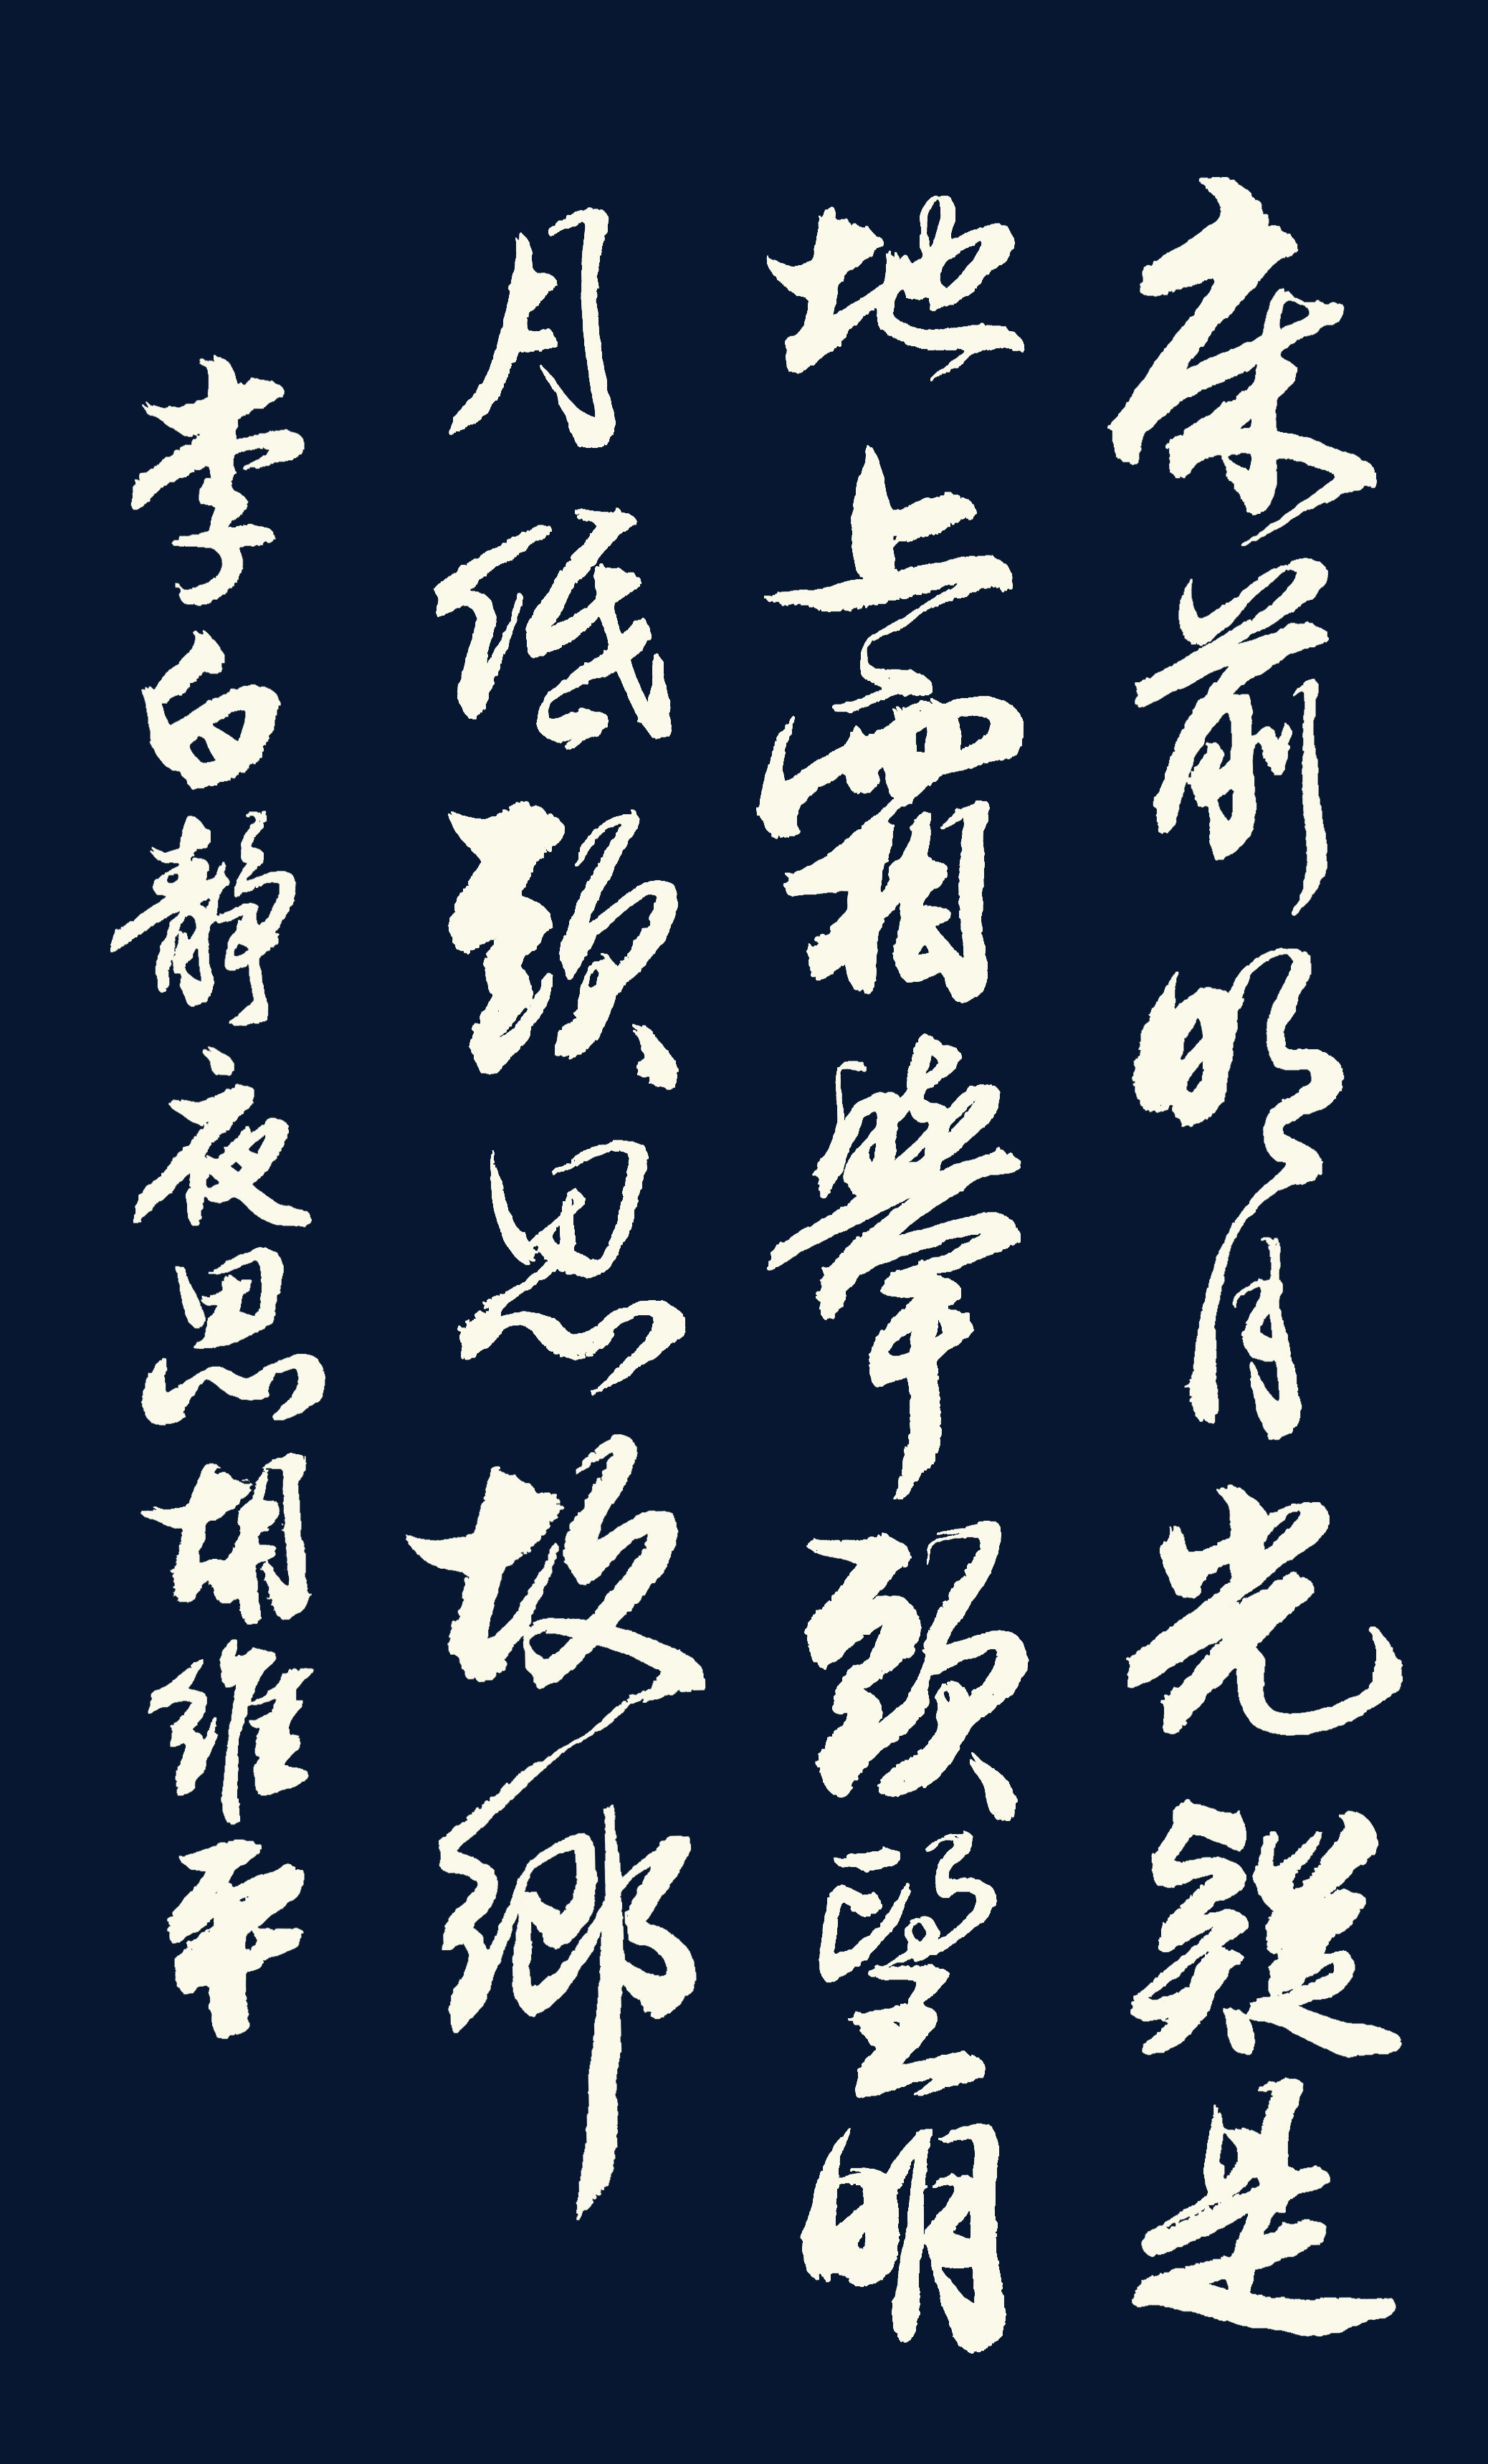 床前明月光疑是
地上霜舉頭望明
月低頭思故鄉
李白靜夜思胡維平